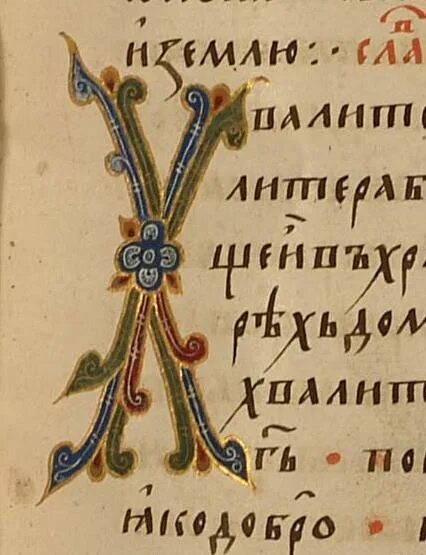 и҆землю :· сла
Хвалите
литераб
щеи҆въхра
рѣхъдом
хвалит
гь • по
ꙗ҆кодобро •